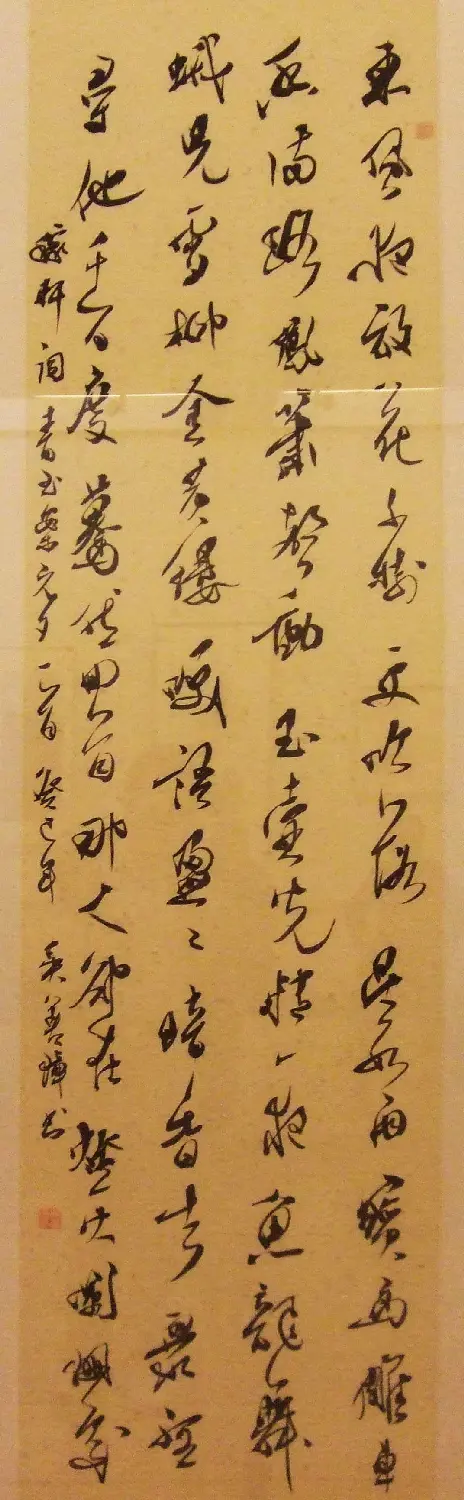 東風夜放花千樹更吹落星如雨寶馬雕車
香滿路鳳簫聲動玉壺光轉一夜魚龍舞
蛾兒雪柳金黃縷笑語盈〻暗香去眾裡
尋他千百度驀然回首那人卻在燈火闌珊處
稼軒詞青玉案元夕一首癸巳年吳善璋書